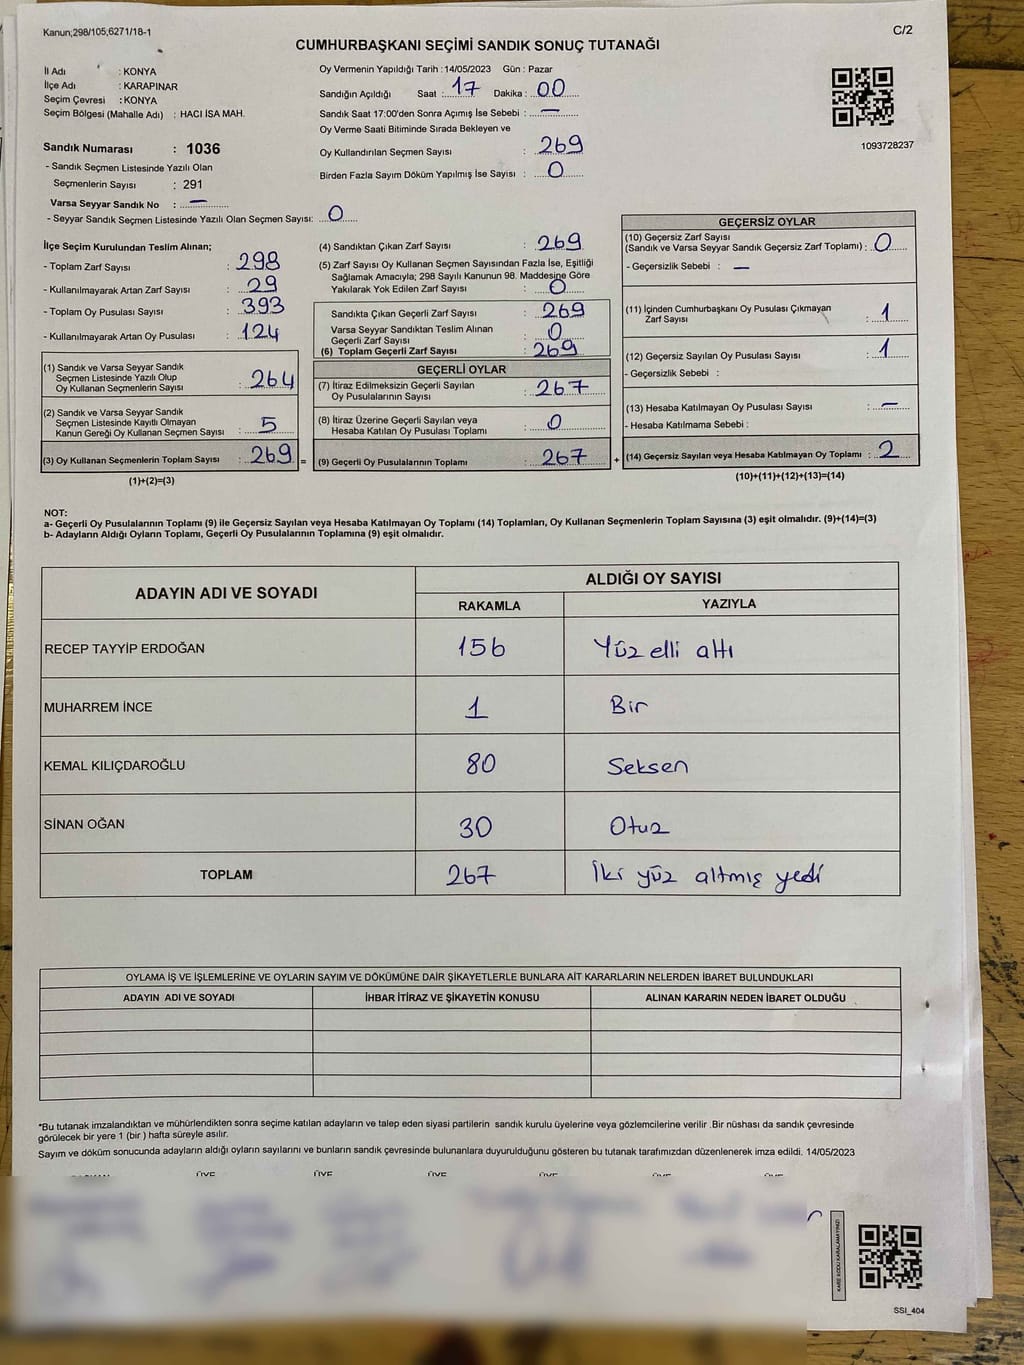 Kanun;298/105;6271/18-1
C/2
CUMHURBAŞKANI SEÇİMİ SANDIK SONUÇ TUTANAĞI
İl Adı : KONYA
İlçe Adı : KARAPINAR
Seçim Çevresi : KONYA
Seçim Bölgesi (Mahalle Adı) : HACI İSA MAH.
Sandık Numarası : 1036
- Sandık Seçmen Listesinde Yazılı Olan
Seçmenlerin Sayısı : 291
Varsa Seyyar Sandık No : —
- Seyyar Sandık Seçmen Listesinde Yazılı Olan Seçmen Sayısı: 0
Oy Vermenin Yapıldığı Tarih : 14/05/2023 Gün : Pazar
Sandığın Açıldığı Saat : 17 Dakika : 00
Sandık Saat 17:00'den Sonra Açımış İse Sebebi : —
Oy Verme Saati Bitiminde Sırada Bekleyen ve
Oy Kullandırılan Seçmen Sayısı : 269
Birden Fazla Sayım Döküm Yapılmış İse Sayısı : 0
1093728237
İlçe Seçim Kurulundan Teslim Alınan;
- Toplam Zarf Sayısı : 298
- Kullanılmayarak Artan Zarf Sayısı : 29
- Toplam Oy Pusulası Sayısı : 393
- Kullanılmayarak Artan Oy Pusulası : 124
(1) Sandık ve Varsa Seyyar Sandık
Seçmen Listesinde Yazılı Olup
Oy Kullanan Seçmenlerin Sayısı : 264
(2) Sandık ve Varsa Seyyar Sandık
Seçmen Listesinde Kayıtlı Olmayan
Kanun Gereği Oy Kullanan Seçmen Sayısı : 5
(3) Oy Kullanan Seçmenlerin Toplam Sayısı : 269 =
(1)+(2)=(3)
(4) Sandıktan Çıkan Zarf Sayısı : 269
(5) Zarf Sayısı Oy Kullanan Seçmen Sayısından Fazla İse, Eşitliği
Sağlamak Amacıyla; 298 Sayılı Kanunun 98. Maddesine Göre
Yakılarak Yok Edilen Zarf Sayısı : 0
Sandıkta Çıkan Geçerli Zarf Sayısı : 269
Varsa Seyyar Sandıktan Teslim Alınan
Geçerli Zarf Sayısı : 0
(6) Toplam Geçerli Zarf Sayısı : 269
GEÇERLİ OYLAR
(7) İtiraz Edilmeksizin Geçerli Sayılan
Oy Pusulalarının Sayısı : 267
(8) İtiraz Üzerine Geçerli Sayılan veya
Hesaba Katılan Oy Pusulası Toplamı : 0
(9) Geçerli Oy Pusulalarının Toplamı : 267 +
GEÇERSİZ OYLAR
(10) Geçersiz Zarf Sayısı
(Sandık ve Varsa Seyyar Sandık Geçersiz Zarf Toplamı) : 0
- Geçersizlik Sebebi : —
(11) İçinden Cumhurbaşkanı Oy Pusulası Çıkmayan
Zarf Sayısı : 1
(12) Geçersiz Sayılan Oy Pusulası Sayısı : 1
- Geçersizlik Sebebi :
(13) Hesaba Katılmayan Oy Pusulası Sayısı : —
- Hesaba Katılmama Sebebi :
(14) Geçersiz Sayılan veya Hesaba Katılmayan Oy Toplamı : 2
(10)+(11)+(12)+(13)=(14)
NOT:
a- Geçerli Oy Pusulalarının Toplamı (9) ile Geçersiz Sayılan veya Hesaba Katılmayan Oy Toplamı (14) Toplamları, Oy Kullanan Seçmenlerin Toplam Sayısına (3) eşit olmalıdır. (9)+(14)=(3)
b- Adayların Aldığı Oyların Toplamı, Geçerli Oy Pusulalarının Toplamına (9) eşit olmalıdır.
ADAYIN ADI VE SOYADI
ALDIĞI OY SAYISI
RAKAMLA YAZIYLA
RECEP TAYYİP ERDOĞAN 156 Yüz elli altı
MUHARREM İNCE 1 Bir
KEMAL KILIÇDAROĞLU 80 Seksen
SİNAN OĞAN 30 Otuz
TOPLAM 267 İki yüz altmış yedi
OYLAMA İŞ VE İŞLEMLERİNE VE OYLARIN SAYIM VE DÖKÜMÜNE DAİR ŞİKAYETLERLE BUNLARA AİT KARARLARIN NELERDEN İBARET BULUNDUKLARI
ADAYIN ADI VE SOYADI İHBAR İTİRAZ VE ŞİKAYETİN KONUSU ALINAN KARARIN NEDEN İBARET OLDUĞU
*Bu tutanak imzalandıktan ve mühürlendikten sonra seçime katılan adayların ve talep eden siyasi partilerin sandık kurulu üyelerine veya gözlemcilerine verilir .Bir nüshası da sandık çevresinde
görülecek bir yere 1 (bir ) hafta süreyle asılır.
Sayım ve döküm sonucunda adayların aldığı oyların sayılarını ve bunların sandık çevresinde bulunanlara duyurulduğunu gösteren bu tutanak tarafımızdan düzenlenerek imza edildi. 14/05/2023
ÜYE ÜYE ÜYE ÜYE ÜYE ÜYE
KARE KODU KARALAMAYINIZ!
SSI_404